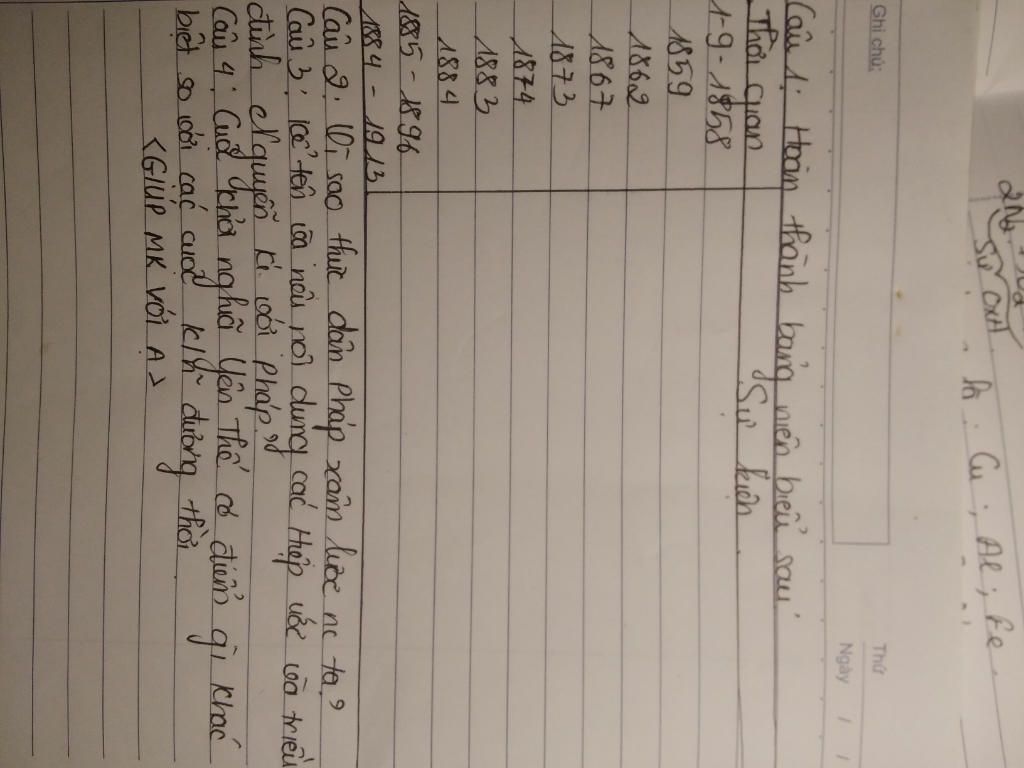 Sự oxh
- A: Cu; Al; Fe.
Ghi chú:
Thứ
Ngày / /
Câu 1: Hoàn thành bảng niên biểu sau:
Thời gian Sự kiện
1-9-1858
1859
1862
1867
1873
1874
1883
1884
1885 - 1896
1884 - 1913
Câu 2: Vì sao thực dân Pháp xâm lược nc ta?
Câu 3: kể tên và nêu nội dung các Hiệp ước và triều
đình Nguyễn kí với pháp?
Câu 4: Cuộc khởi nghĩa Yên Thế có điểm gì khác
biệt so với các cuộc k/n đương thời
<GIÚP MK VỚI Ạ>